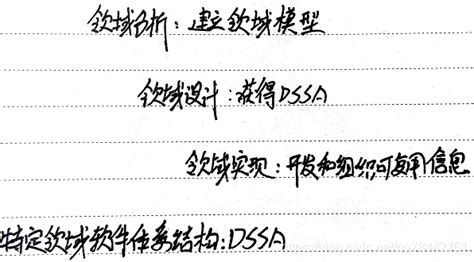 领域分析：建立领域模型
领域设计：获得DSSA
领域实现：开发和组织可复用信息
特定领域软件体系结构：DSSA